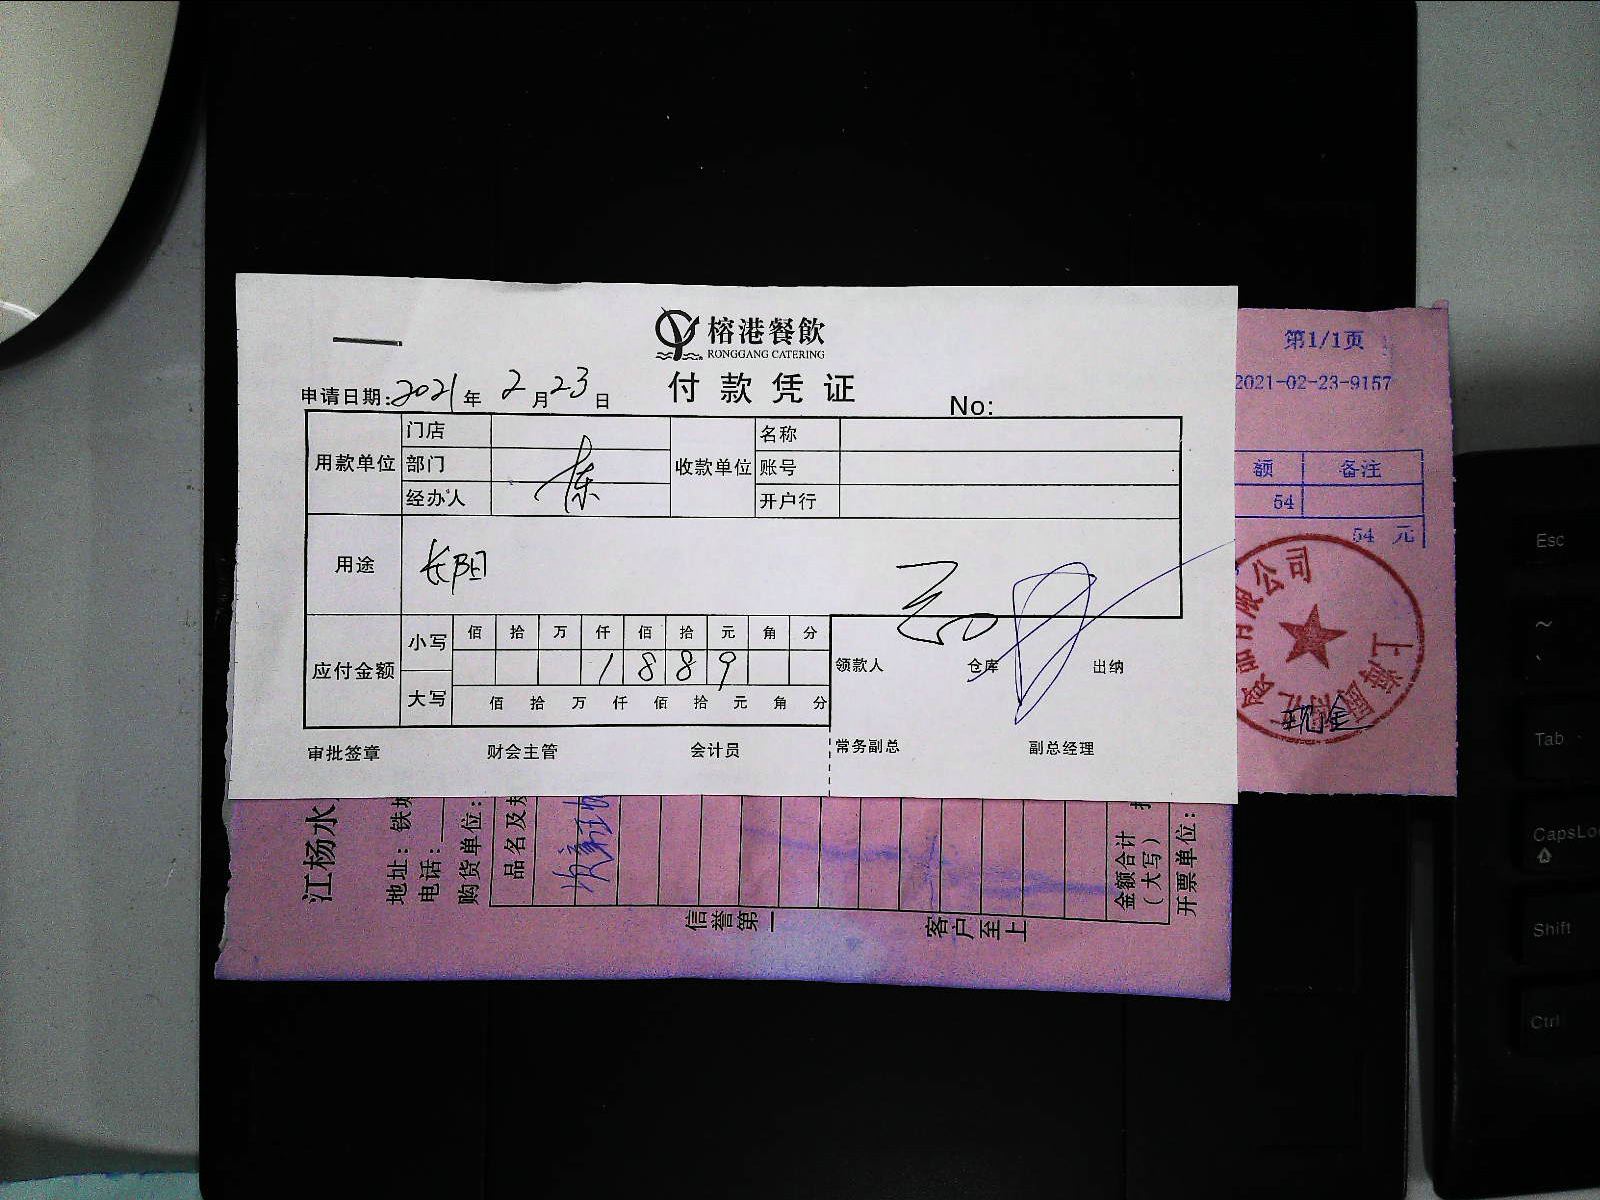 榕港餐飲
RONGGANG CATERING
付款凭证
申请日期:2021年2月23日
No:
用款单位 门店 收款单位 名称
部门 账号
经办人 栋 开户行
用途 长阳
应付金额 小写 佰 拾 万 仟 佰 拾 元 角 分
1 8 8 9
大写 佰 拾 万 仟 佰 拾 元 角 分
领款人 仓库 出纳
审批签章 财会主管 会计员 常务副总 副总经理
第1/1页
2021-02-23-9157
额 备注
54
54 元
上海
有限公司
现金
江杨水
地址:铁
电话:
购货单位:
品名及规
金额合计
(大写)
开票单位:
信誉第一
客户至上
Esc
~
Tab
CapsLo
Shift
Ctrl